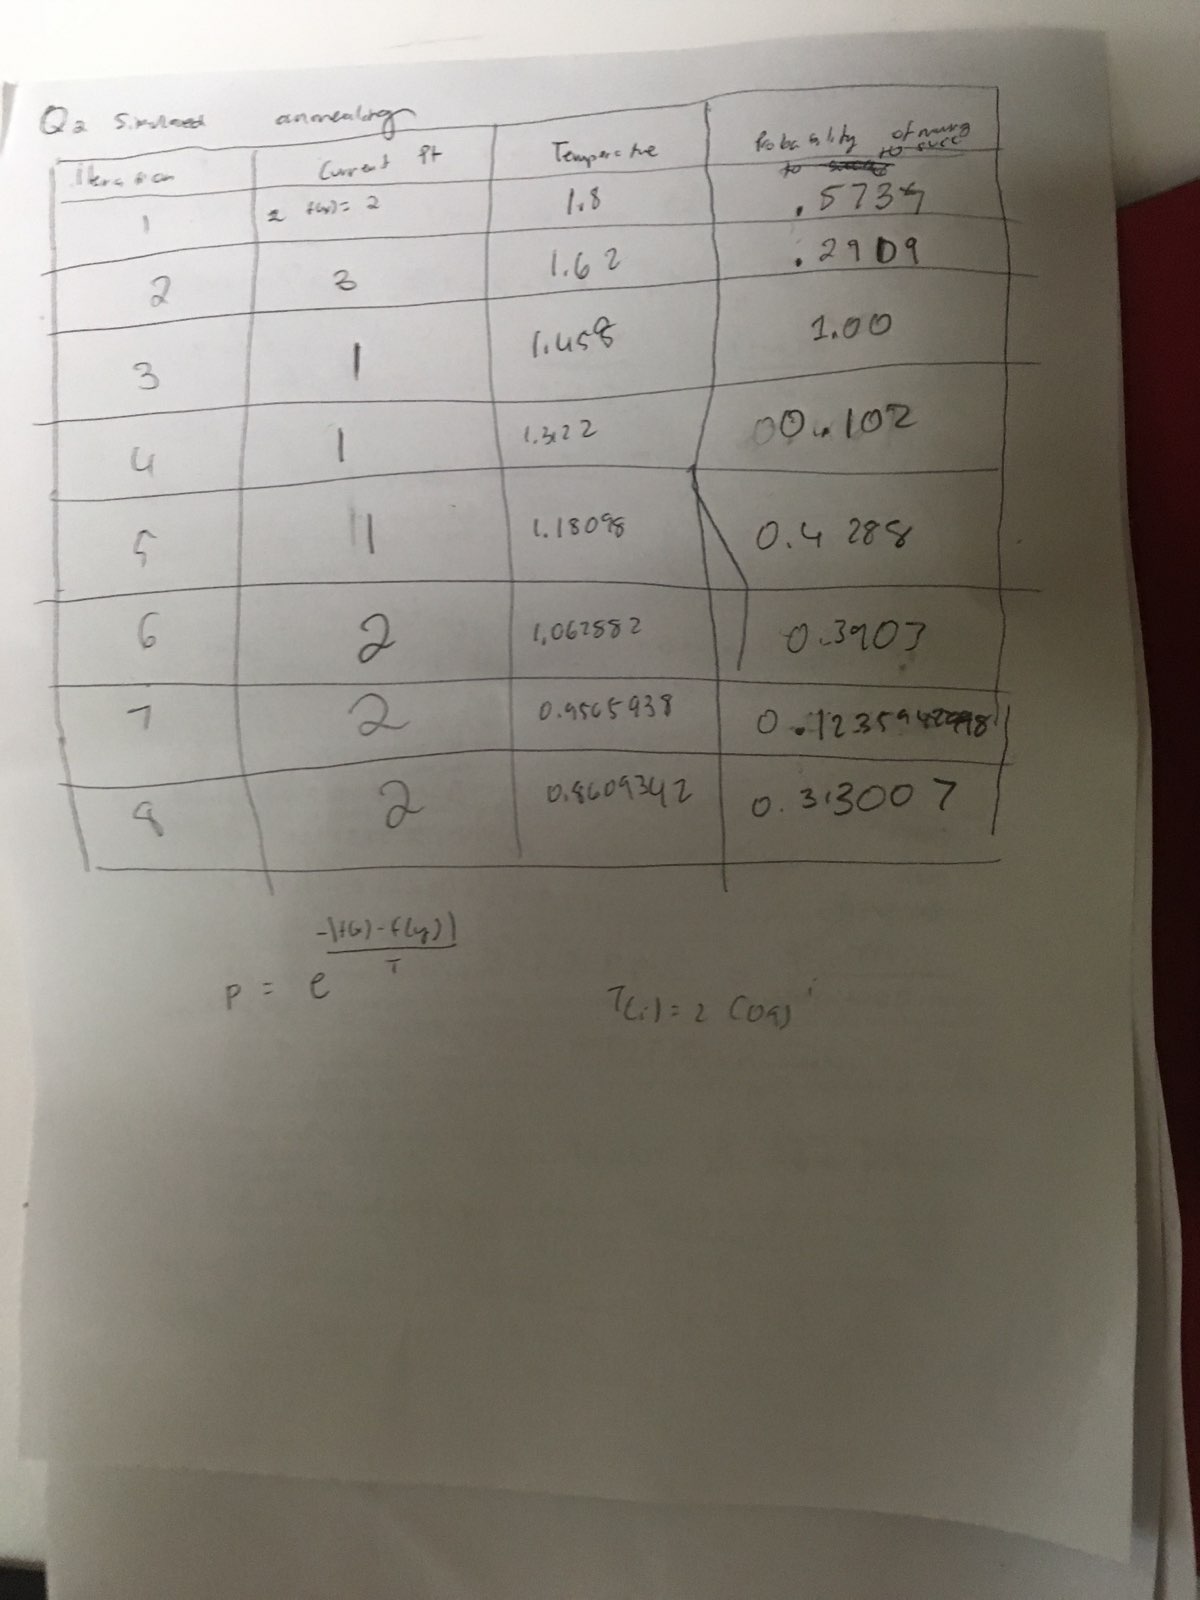 Q2 Simulated annealing
Iteration Current Pt Temperature Probability of moving to succ
1 2 f(x)= 2 1.8 .5737
2 3 1.62 .2909
3 1 1.458 1.00
4 1 1.3122 00.102
5 1 1.18098 0.4288
6 2 1.062882 0.3903
7 2 0.9565938 0.12359
8 2 0.8609342 0.313007
p = e^(-|f(x)-f(y)|/T)
T(i)=2 (0.9)^i